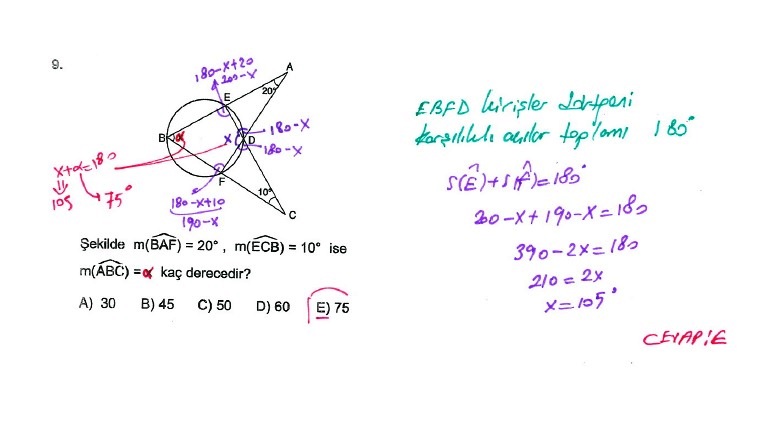 9.
180-x+20
200-x
A
20°
E
180-x
B
α
x
D
180-x
x+α=180
105
75°
F
180-x+10
190-x
10°
C
Şekilde m(BAF) = 20° , m(ECB) = 10° ise
m(ABC) = α kaç derecedir?
A) 30 B) 45 C) 50 D) 60 E) 75
EBFD kirişler dörtgeni
karşılıklı açılar toplamı 180°
s(Ê)+s(F̂)=180°
200-x+190-x=180
390-2x=180
210=2x
x=105°
CEVAP:E